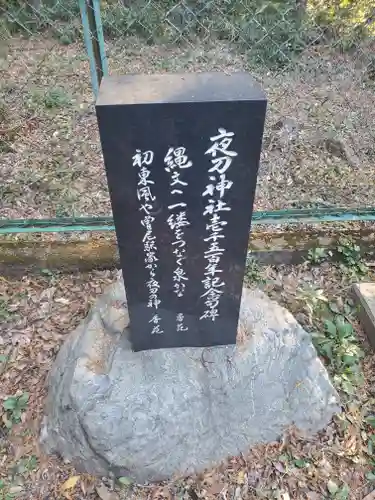 夜刀神社壱千五百年記念句碑
縄文へ一縷をつなぐ泉かな 香花
初東風や曽尼駅家から夜刀の神 香花